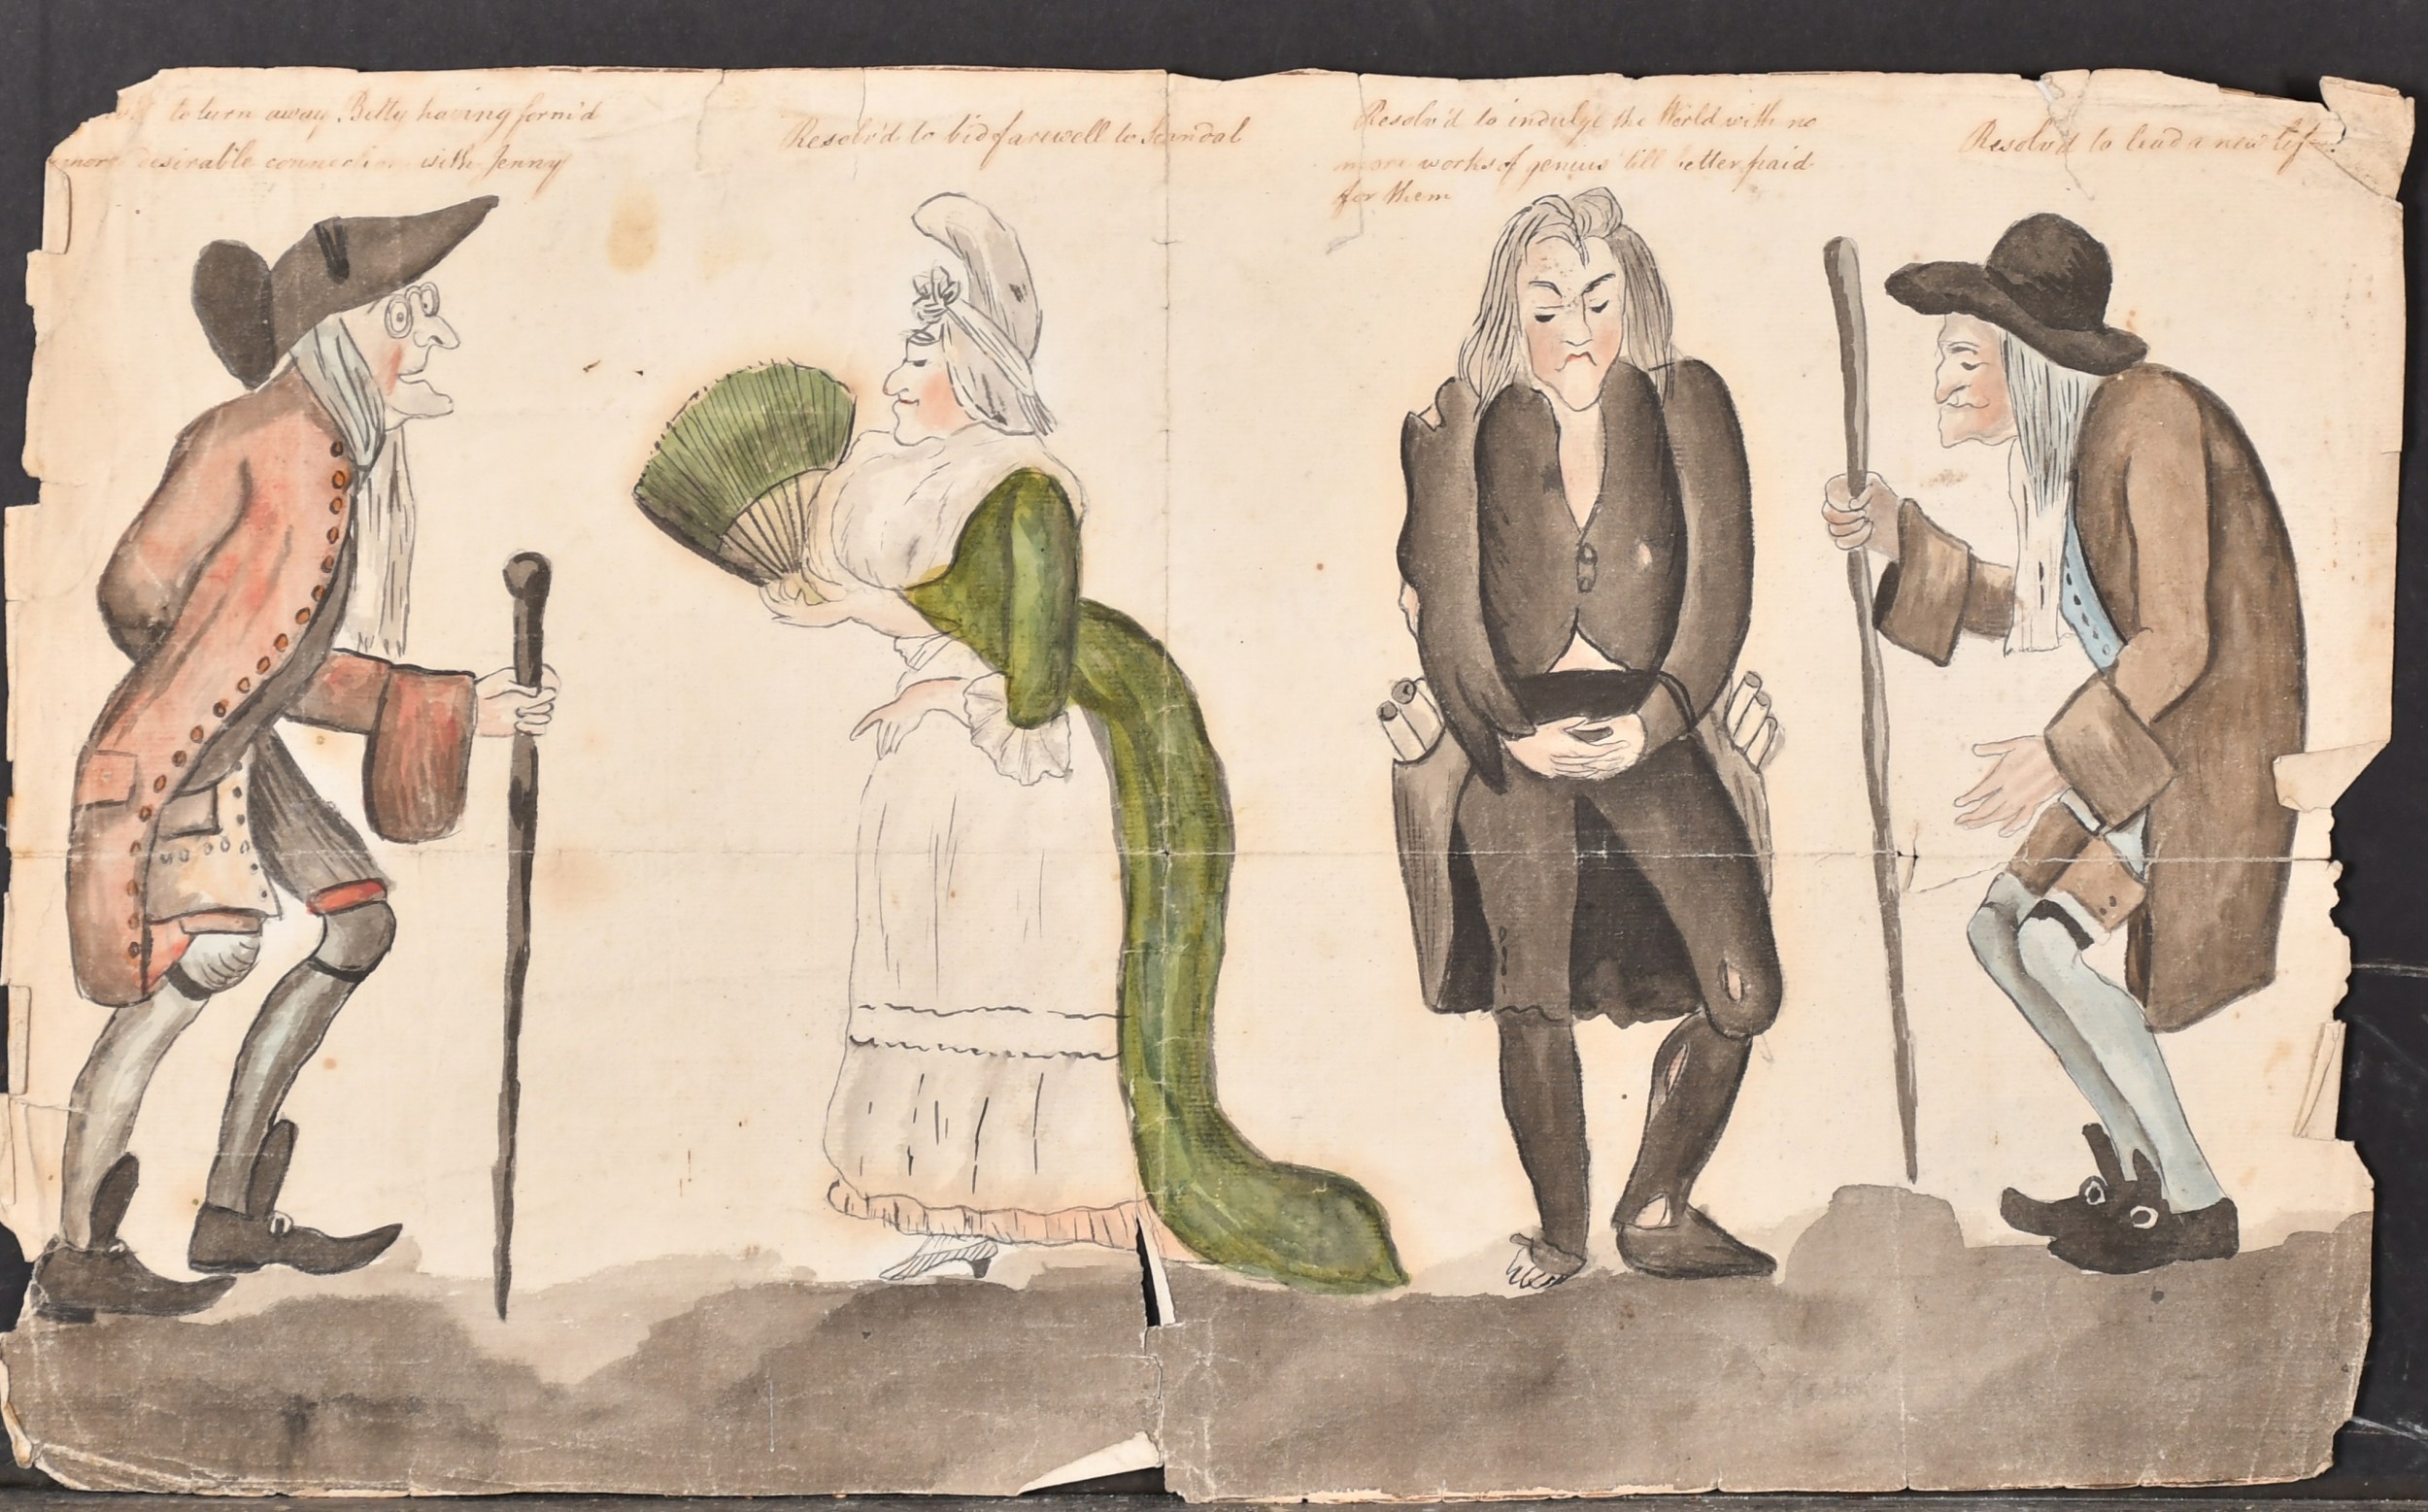 to turn away Betty having form'd
more desirable connection with Jenny
Resolv'd to bid farewell to Scandal
Resolv'd to indulge the World with no
more works of genius till better paid
for them
Resolv'd to lead a new life